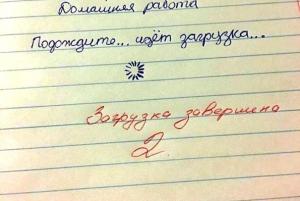 Домашняя работа
Подождите... идёт загрузка...
Загрузка завершена
2.